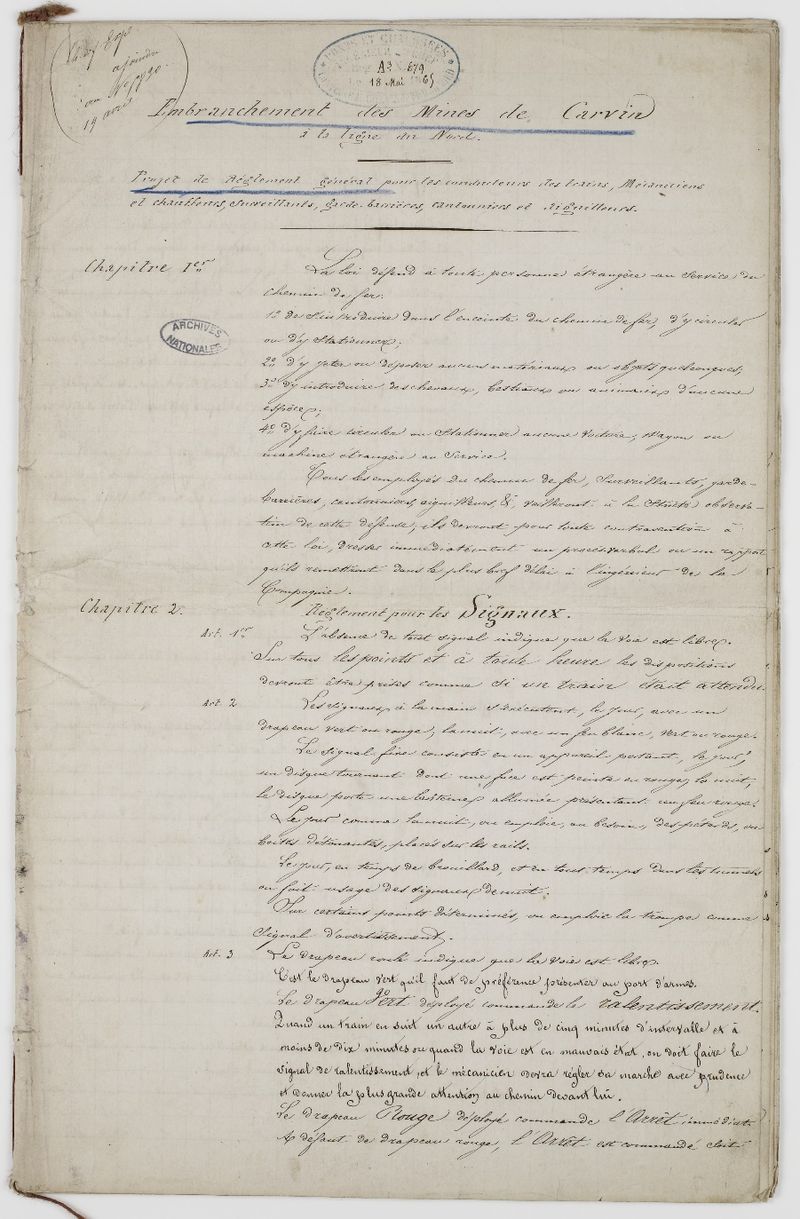 2e Exp
à joindre
au No 7790
14 avril
PONTS ET CHAUSSÉES
A3 N° 679
Le 18 Mai 65
Embranchement des Mines de Carvin
à la ligne du Nord.
Projet de Règlement général pour les conducteurs des trains, Mécaniciens
et chauffeurs, surveillants, garde-barrières, cantonniers et aiguilleurs.
Chapitre 1er
La loi défend à toute personne étrangère au service du
chemin de fer:
1° de s'introduire dans l'enceinte du chemin de fer, d'y circuler
ou d'y Stationner;
ARCHIVES
NATIONALES
2° d'y jeter ou déposer aucuns matériaux ou objets quelconques;
3° d'y introduire des chevaux, bestiaux ou animaux d'aucune
espèce;
4° d'y faire circuler ou Stationner aucune voiture, wagon ou
machine étrangère au Service.
Tous les employés du chemin de fer, Surveillants, garde-
barrières, cantonniers, aiguilleurs, &, veilleront à la Stricte observa-
tion de cette défense, ils devront pour toute contravention à
cette loi, dresser immédiatement un procès-verbal ou un rapport
qu'ils remettront dans le plus bref délai à l'ingénieur de la
Compagnie.
Chapitre 2.
Règlement pour les Signaux.
Art. 1er
L'absence de tout signal indique que la voie est libre.
Sur tous les points et à toute heure les dispositions
devront être prises comme si un train était attendu.
Art. 2
Les signaux à la main s'exécutent, le jour, avec un
drapeau vert ou rouge, la nuit, avec un feu blanc, vert ou rouge.
Le signal fixe consiste en un appareil portant, le jour,
un disque tournant dont une face est peinte en rouge, la nuit,
le disque porte une lanterne allumée présentant un feu rouge.
Le jour comme la nuit, on emploie, au besoin, des pétards, ou
boîtes détonantes, placés sur les rails.
Le jour, en temps de brouillard, et en tout temps dans les tunnels
on fait usage des signaux de nuit.
Sur certains points déterminés, on emploie la trompe comme
Signal d'avertissement.
Art. 3
Le drapeau roulé indique que la voie est libre.
C'est le drapeau vert qu'il faut de préférence présenter au port d'armes.
Le drapeau Vert déployé commande le ralentissement.
Quand un train en suit un autre à plus de cinq minutes d'intervalle et à
moins de dix minutes ou quand la voie est en mauvais état, on doit faire le
signal de ralentissement, et le mécanicien devra régler sa marche avec prudence
et donner la plus grande attention au chemin devant lui.
Le drapeau Rouge déployé commande l'Arrêt immédiat.
A défaut de drapeau rouge, l'Arrêt est commandé soit